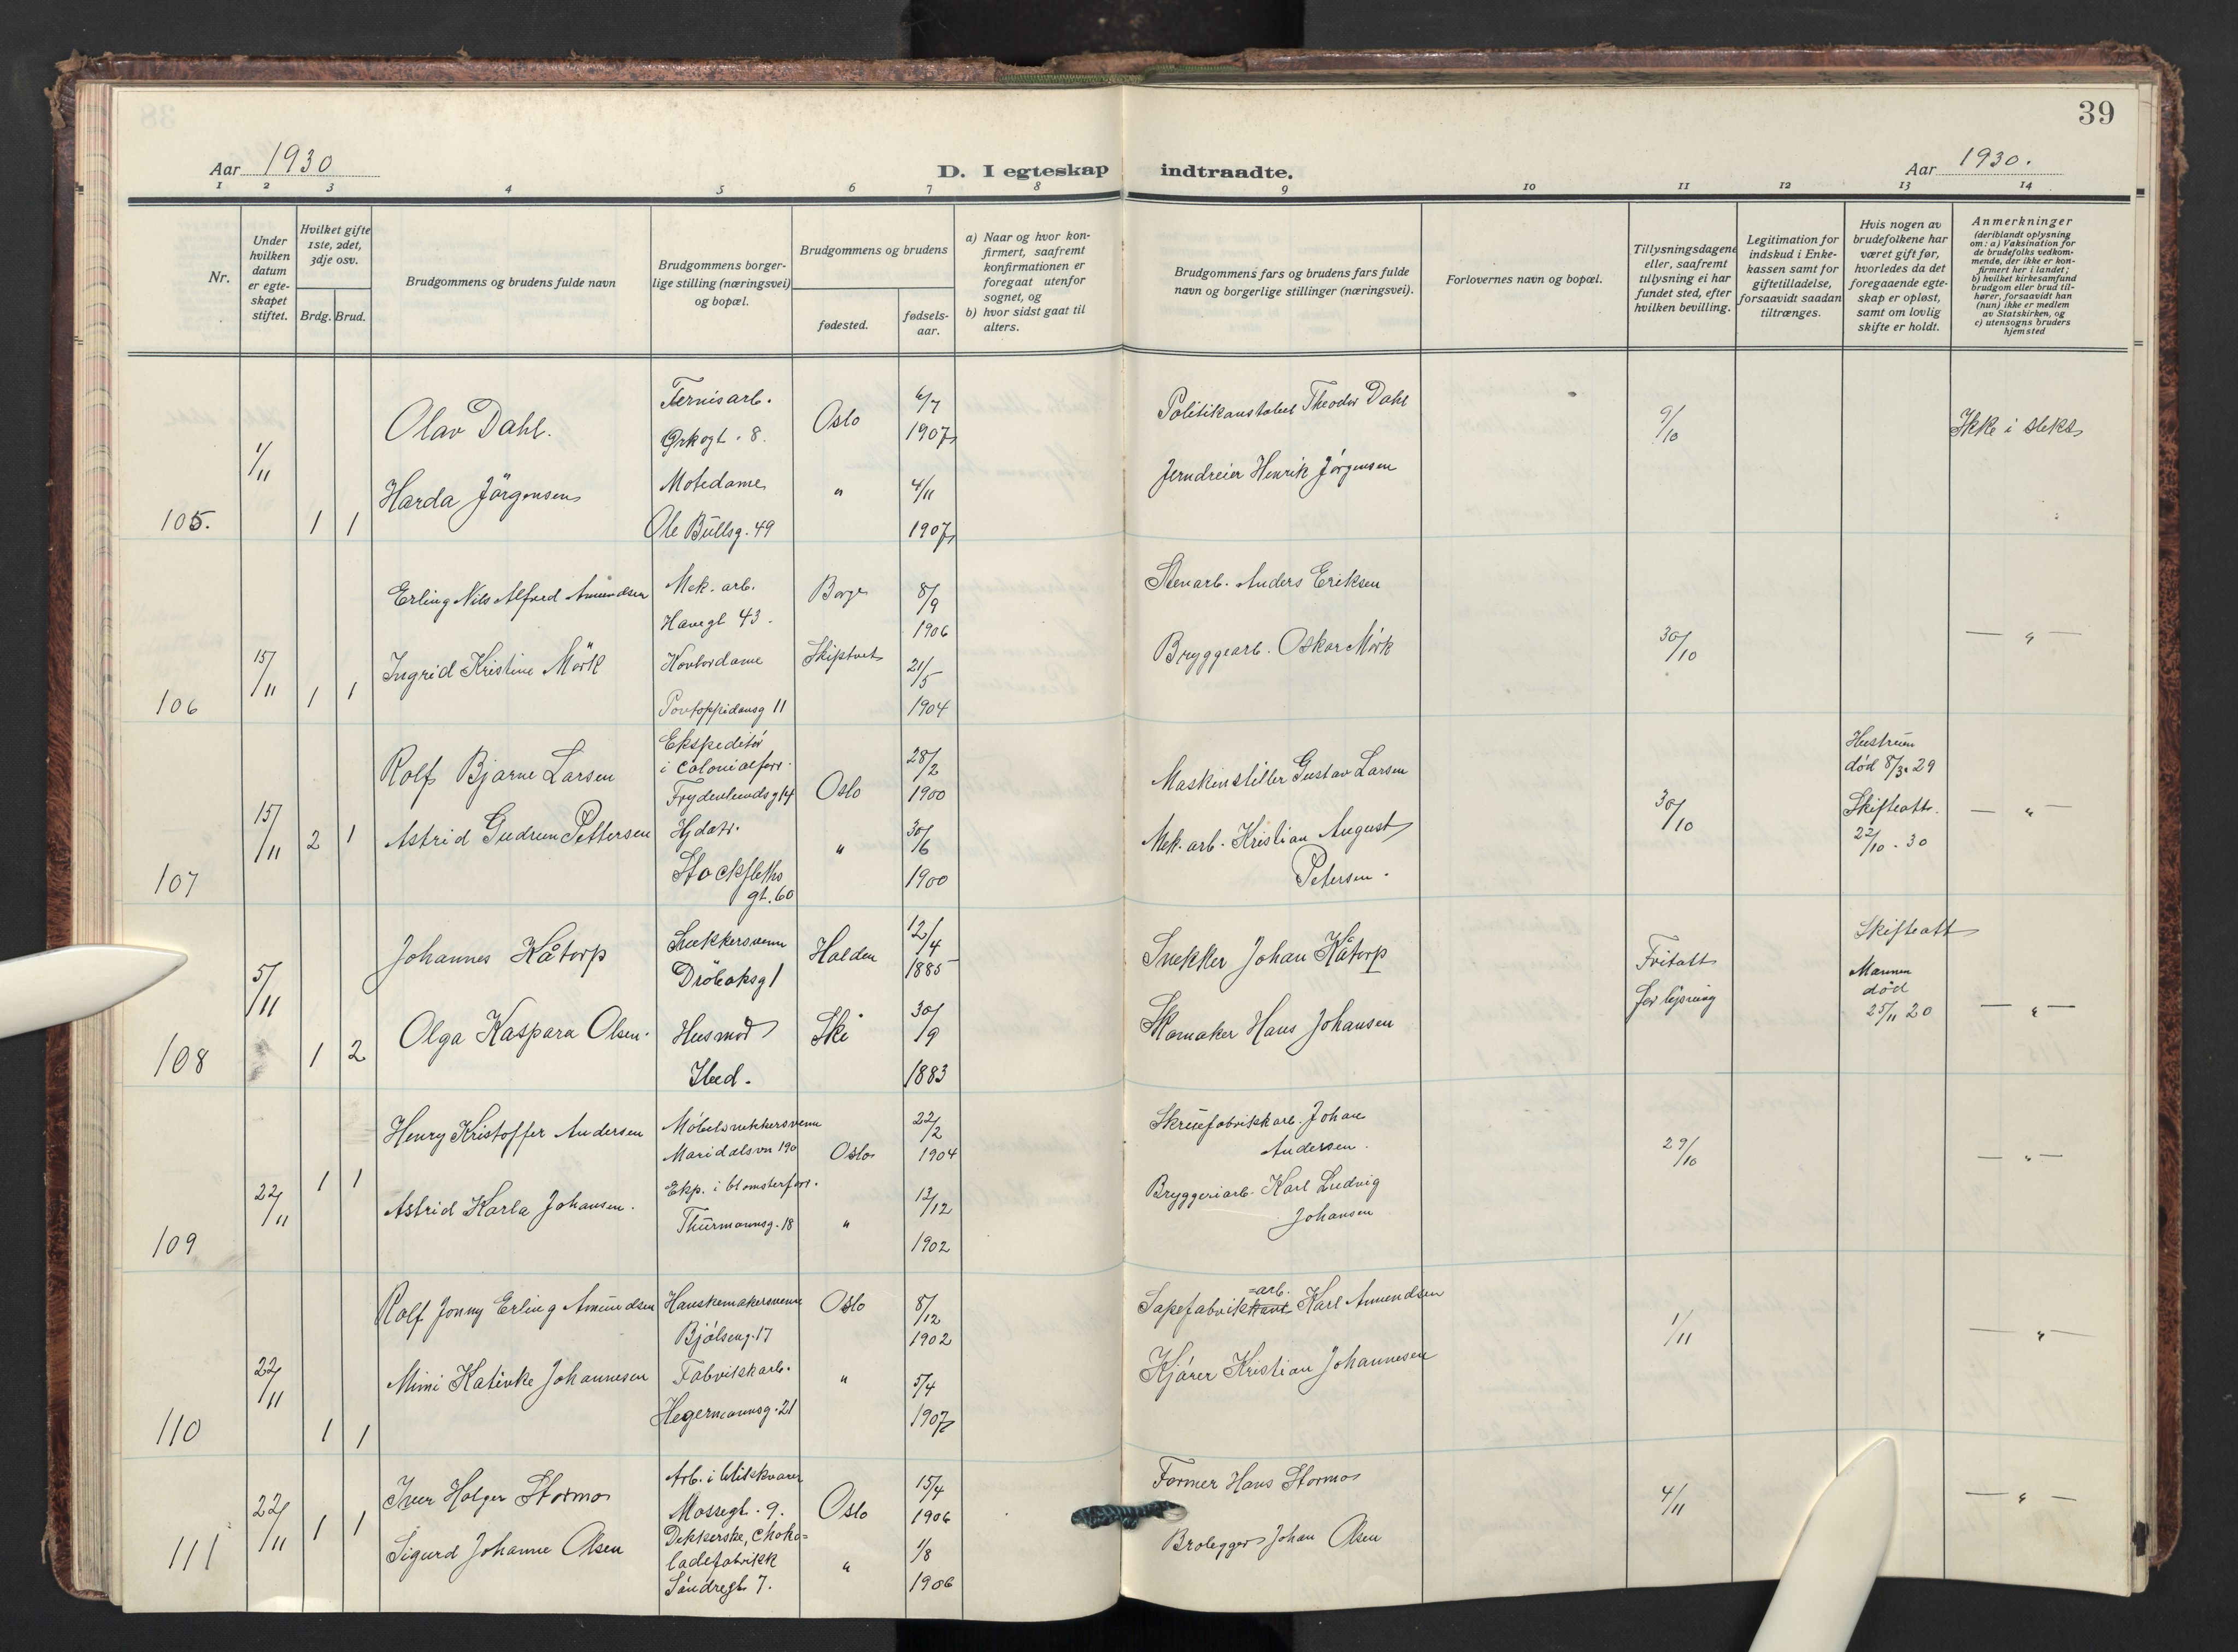 39
Aar 1930
D. I egteskap indtraadte.
Aar 1930.
1 2 3 4 5 6 7 8 9 10 11 12 13 14
Nr.
Under hvilken datum er egteskapet stiftet.
Hvilket gifte 1ste, 2det, 3dje osv.
Brdg. Brud.
Brudgommens og brudens fulde navn
Brudgommens borgerlige stilling (næringsvei) og bopæl.
Brudgommens og brudens
fødested.
fødselsaar.
a) Naar og hvor konfirmert, saafremt konfirmationen er foregaat utenfor sognet, og
b) hvor sidst gaat til alters.
Brudgommens fars og brudens fars fulde navn og borgerlige stillinger (næringsvei).
Forlovernes navn og bopæl.
Tillysningsdagene eller, saafremt tillysning ei har fundet sted, efter hvilken bevilling.
Legitimation for indskud i Enkekassen samt for giftetilladelse, forsaavidt saadan tiltrænges.
Hvis nogen av brudefolkene har været gift før, hvorledes da det foregaaende egteskap er opløst, samt om lovlig skifte er holdt.
Anmerkninger
(deriblandt oplysning om: a) Vaksination for de brudefolks vedkommende, der ikke er konfirmert her i landet;
b) hvilket kirkesamfund brudgom eller brud tilhører, forsaavidt han (hun) ikke er medlem av Statskirken, og
c) utensogns bruders hjemsted
105. 1/11 1 1
Olav Dahl. Fernisarb. Oslo 6/7 1907
Politikonstabel Theodor Dahl 9/10 Ikke i slekt
Harda Jörgensen Motedame " 4/11
Ole Bullsg. 49 1907
Jerndreier Henrik Jörgensen
106 15/11 1 1
Erling Nils Alfred Amundsen Mek. arb. Borge 8/9
Havegt 43. 1906
Stenarb. Anders Eriksen 30/10 — " —
Ingrid Kristine Mörk Kontordame Skiptvet 21/5
Pontoppidansg 11 1904
Bryggearb. Oskar Mörk
107 15/11 2 1
Rolf Bjarne Larsen Ekspeditör
i Colonialforr. Oslo 28/2
Frydenlundsg 14 1900
Maskinstiller Gustav Larsen 30/10
Hustruen
död 8/3. 29
Skifteatt.
22/10. 30 — " —
Astrid Gudrun Pettersen Hj datr. " 30/6
Stockfleths
gt. 60 1900
Mek. arb. Kristian August
Petersen.
108 5/11 1 2
Johannes Kåtorp Snekkersvenn Halden 12/4
Dröbaksg 1 1885
Snekker Johan Kåtorp Fritatt
for lysning
Skifteatt
Mannen
död
25/11 20 — " —
Olga Kaspara Olsen. Husmod Ski 30/9
Ibid. 1883
Skomaker Hans Johansen
109 22/11 1 1
Henry Kristoffer Andersen Möbelsnekkersvenn
Maridalsvn 190 Oslo 22/2 1904
Skruefabrikkarb. Johan
Andersen. 29/10 — " —
Astrid Karla Johansen. Eksp. i blomsterforr.
Thurmannsg. 18 " 12/12 1902
Bryggeriarb. Karl Ludvig
Johansen
110 22/11 1 1
Rolf Jonny Erling Amundsen Hanskemakersvenn Oslo 8/12
Bjölseng. 17 1902
Sapefabrikkarb. Karl Amundsen 1/11 — " —
Mimi Kativke Johannesen Fabrikkarb. " 5/4
Hegermannsg. 21 1907
Kjörer Kristian Johannesen
111 22/11 1 1
Iver Holger Stormo Arb. i blikkvarer
Mossegt. 9. Oslo 15/4 1906
Former Hans Stormo 4/11 — " —
Sigurd Johanne Olsen Dekkerske, choko-
ladefabrikk
Söndregt 7. " 1/8 1906
Brolegger Johan Olsen